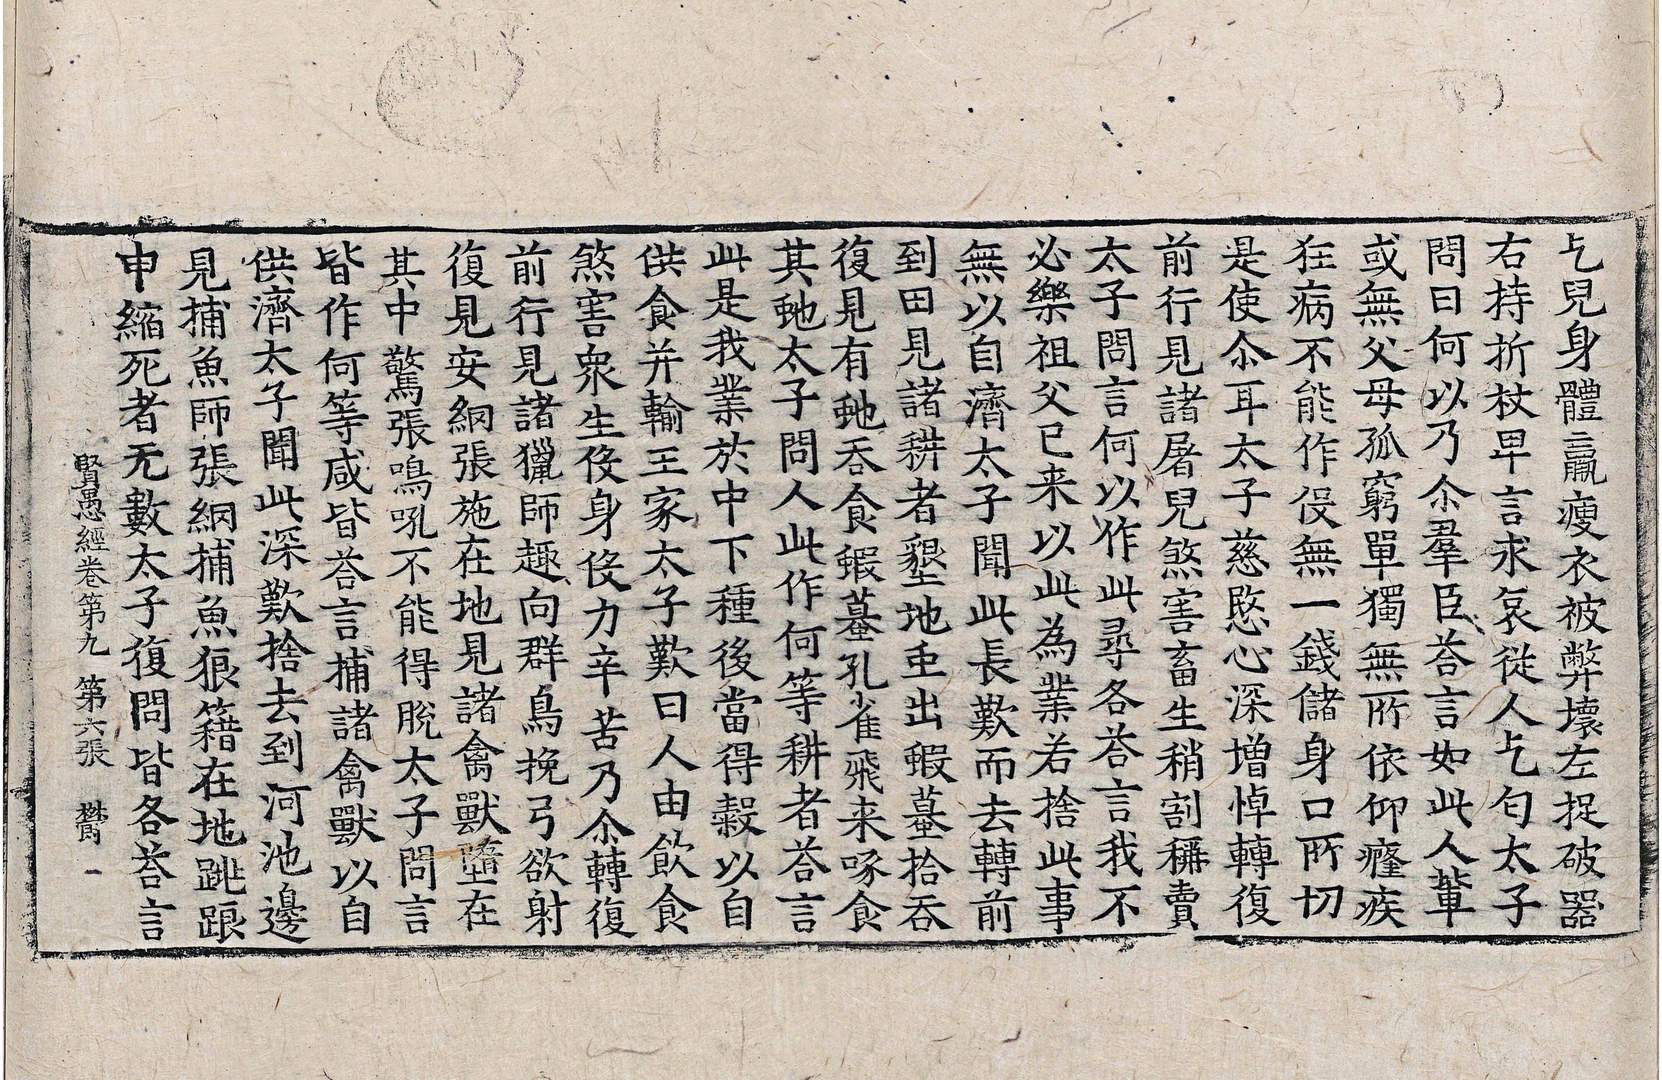 乞兒身體羸瘦衣被弊壞左捉破器
右持折杖卑言求哀從人乞匃太子
問曰何以乃尒羣臣荅言如此人輩
或無父母孤窮單獨無所依仰癃疾
狂病不能作役無一錢儲身口所切
是使尒耳太子慈愍心深增悼轉復
前行見諸屠兒煞害畜生稍割稱賣
太子問言何以作此尋各荅言我不
必樂祖父已来以此為業若捨此事
無以自濟太子聞此長歎而去轉前
到田見諸耕者墾地虫出蝦蟇拾吞
復見有虵吞食蝦蟇孔雀飛来啄食
其虵太子問人此作何等耕者荅言
此是我業於中下種後當得穀以自
供食并輸王家太子歎曰人由飲食
煞害衆生役身役力辛苦乃尒轉復
前行見諸獵師趣向群鳥挽弓欲射
復見安網張施在地見諸禽獸墮在
其中驚張鳴吼不能得脫太子問言
皆作何等咸皆荅言捕諸禽獸以自
供濟太子聞此深歎捨去到河池邊
見捕魚師張網捕魚狼籍在地跳踉
申縮死者无數太子復問皆各荅言
賢愚經卷第九 第六張 欝